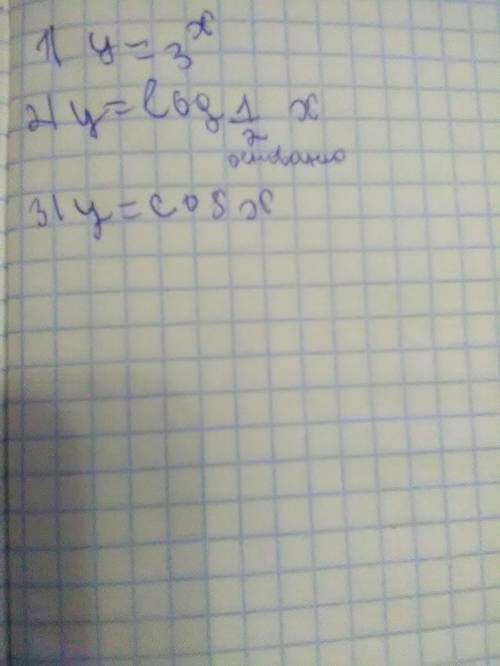 1) y = 3^x
2) y = log 1/2 x
основание
3) y = cos x